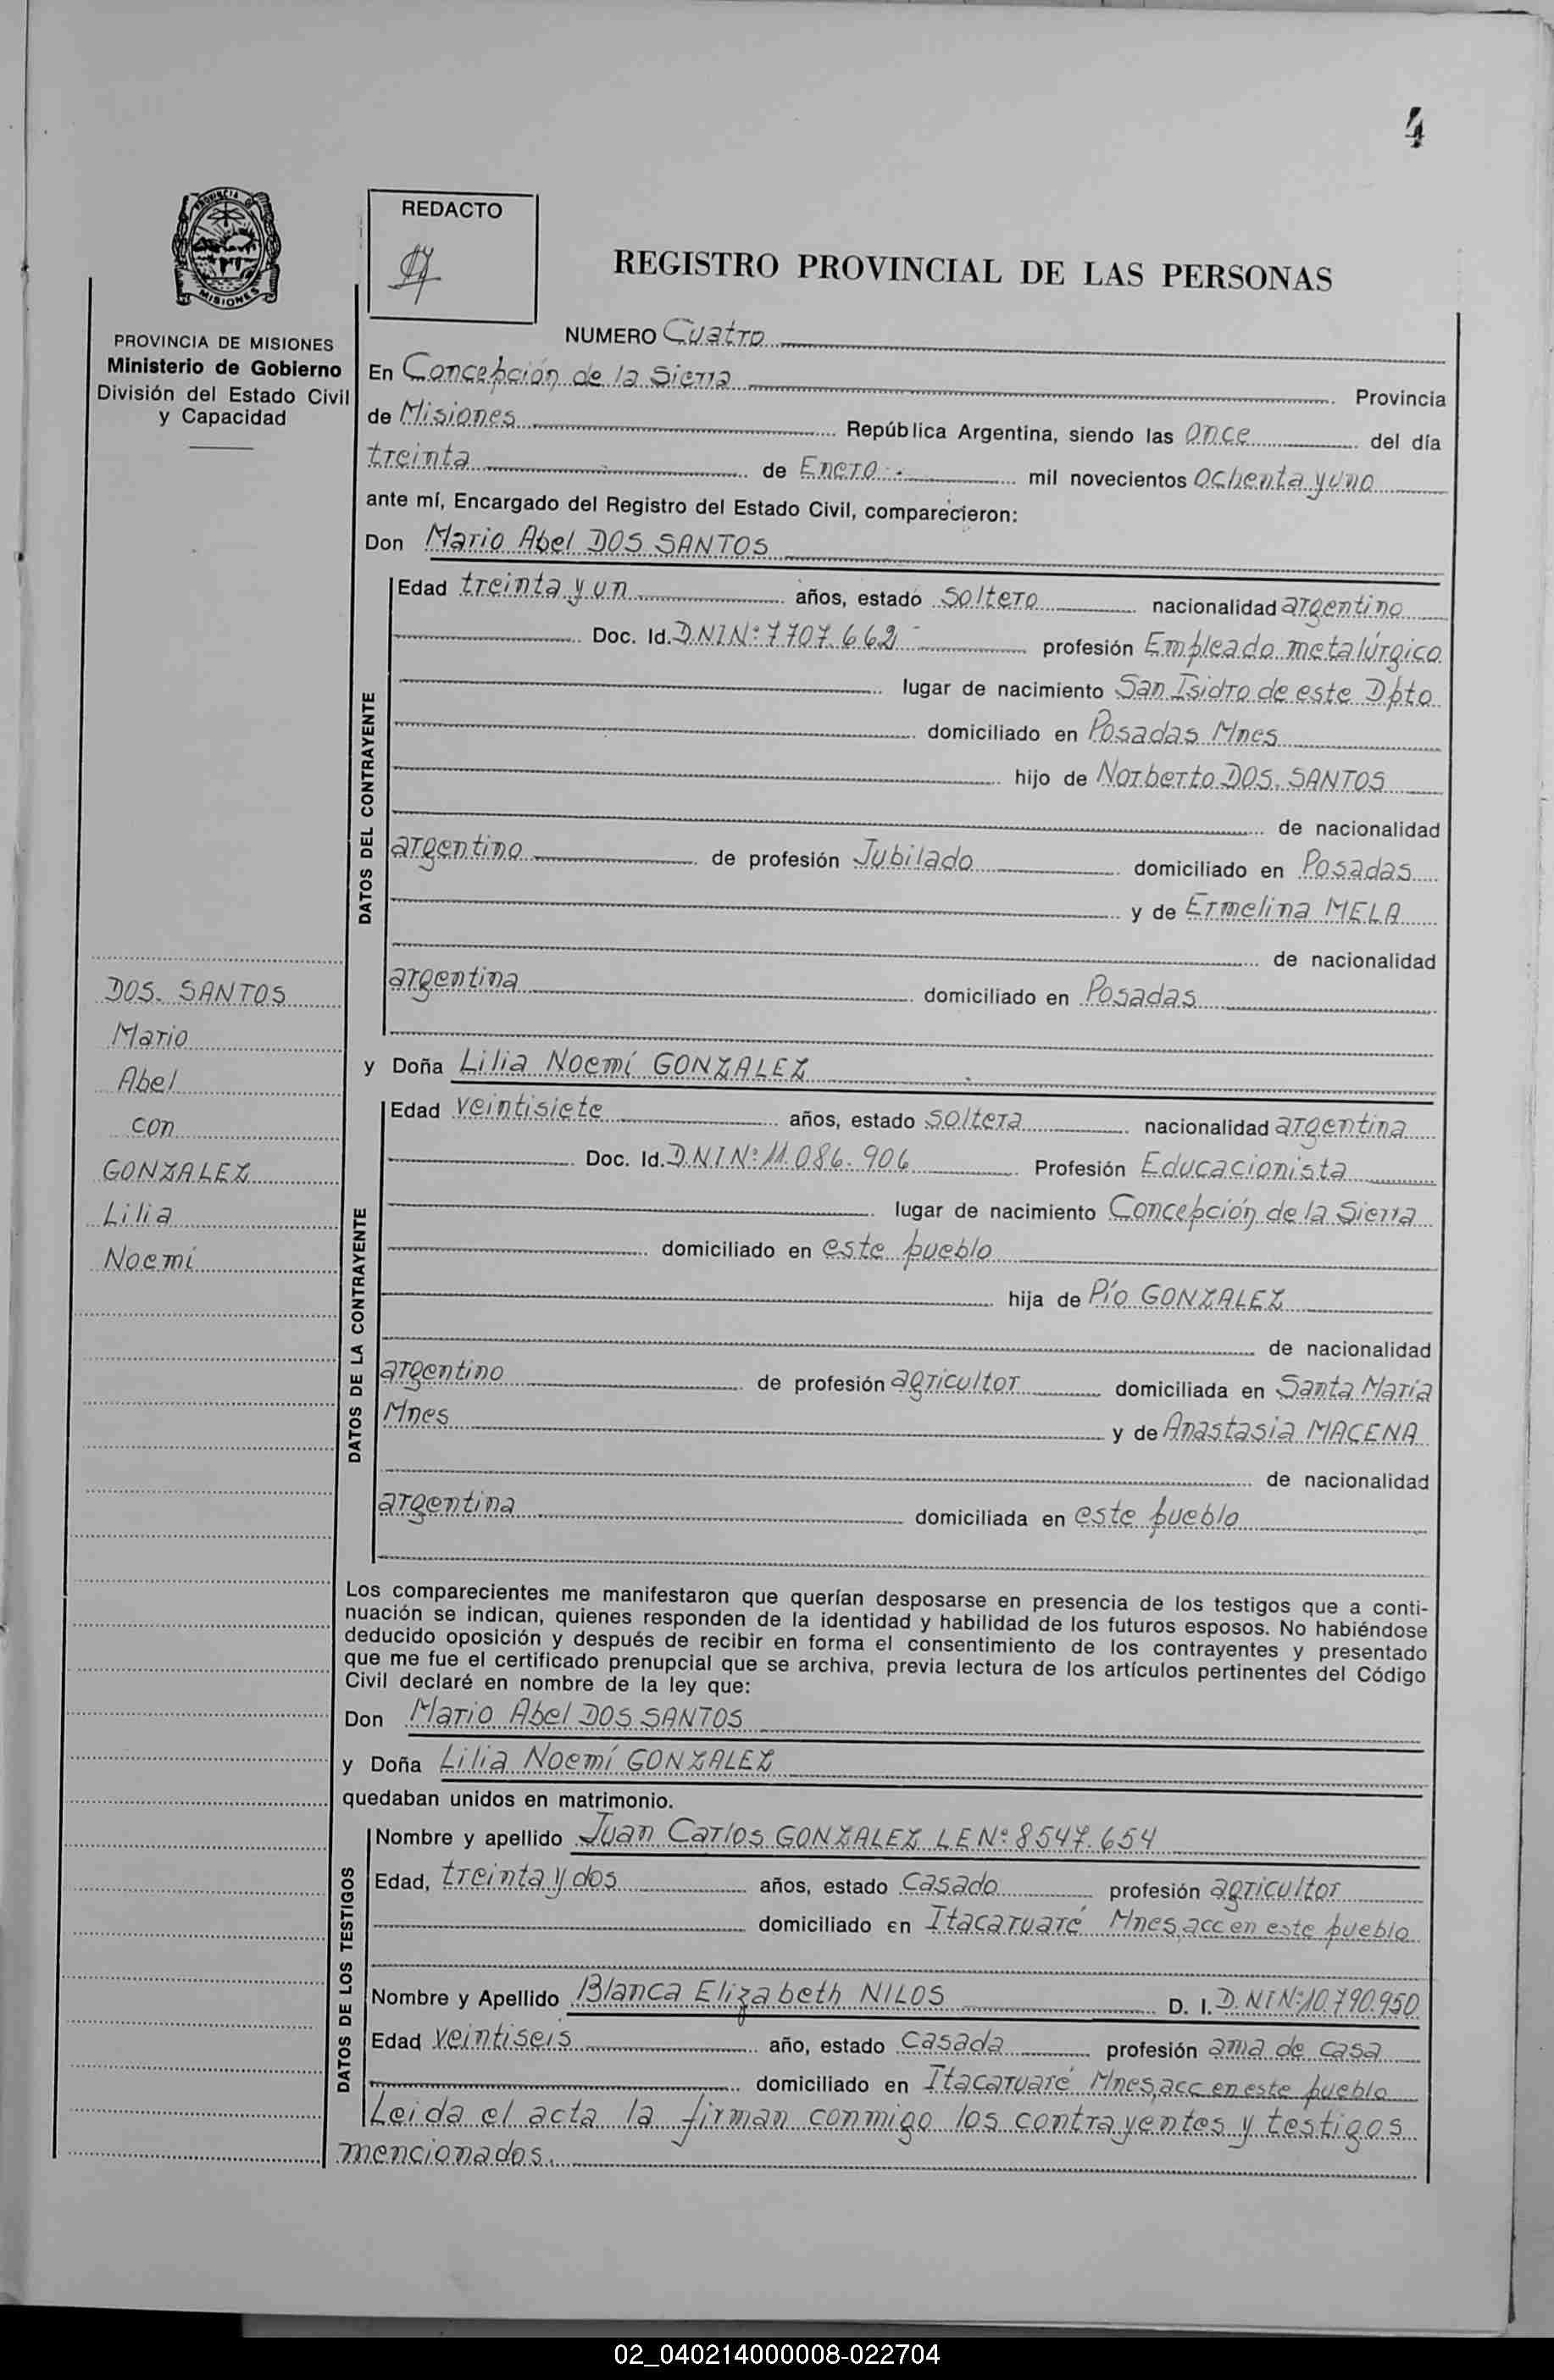 4
REDACTO
PROVINCIA DE MISIONES
REGISTRO PROVINCIAL DE LAS PERSONAS
PROVINCIA DE MISIONES
Ministerio de Gobierno
División del Estado Civil
y Capacidad
NUMERO Cuatro
En Concepción de la Sierra Provincia
de Misiones República Argentina, siendo las once del día
treinta de Enero.- mil novecientos ochenta y uno
ante mí, Encargado del Registro del Estado Civil, comparecieron:
Don Mario Abel DOS SANTOS
DATOS DEL CONTRAYENTE
Edad treinta y un años, estado soltero nacionalidad argentino
Doc. Id. DNI Nº 7707.662 profesión Empleado metalúrgico
lugar de nacimiento San Isidro de este Dpto
domiciliado en Posadas Mnes
hijo de Norberto DOS SANTOS
de nacionalidad
argentino de profesión Jubilado domiciliado en Posadas
y de Ermelina MELA
de nacionalidad
argentina domiciliado en Posadas
DOS SANTOS
Mario
Abel
con
GONZALEZ
Lilia
Noemí
y Doña Lilia Noemí GONZALEZ
DATOS DE LA CONTRAYENTE
Edad veintisiete años, estado soltera nacionalidad argentina
Doc. Id. DNI Nº 11.086.906 Profesión Educacionista
lugar de nacimiento Concepción de la Sierra
domiciliado en este pueblo
hija de Pío GONZALEZ
de nacionalidad
argentino de profesión agricultor domiciliada en Santa María
Mnes y de Anastasia MACENA
de nacionalidad
argentina domiciliada en este pueblo
Los comparecientes me manifestaron que querían desposarse en presencia de los testigos que a conti-
nuación se indican, quienes responden de la identidad y habilidad de los futuros esposos. No habiéndose
deducido oposición y después de recibir en forma el consentimiento de los contrayentes y presentado
que me fue el certificado prenupcial que se archiva, previa lectura de los artículos pertinentes del Código
Civil declaré en nombre de la ley que:
Don Mario Abel DOS SANTOS
y Doña Lilia Noemí GONZALEZ
quedaban unidos en matrimonio.
DATOS DE LOS TESTIGOS
Nombre y apellido Juan Carlos GONZALEZ LE Nº 8547.654
Edad, treinta y dos años, estado casado profesión agricultor
domiciliado en Itacaruaré Mnes, acc en este pueblo
Nombre y Apellido Blanca Elizabeth NILOS D. I. D.NI Nº 10.790.950
Edad veintiseis año, estado casada profesión ama de casa
domiciliado en Itacaruaré Mnes, acc en este pueblo
Leida el acta la firman conmigo los contrayentes y testigos
mencionados.
02_040214000008-022704